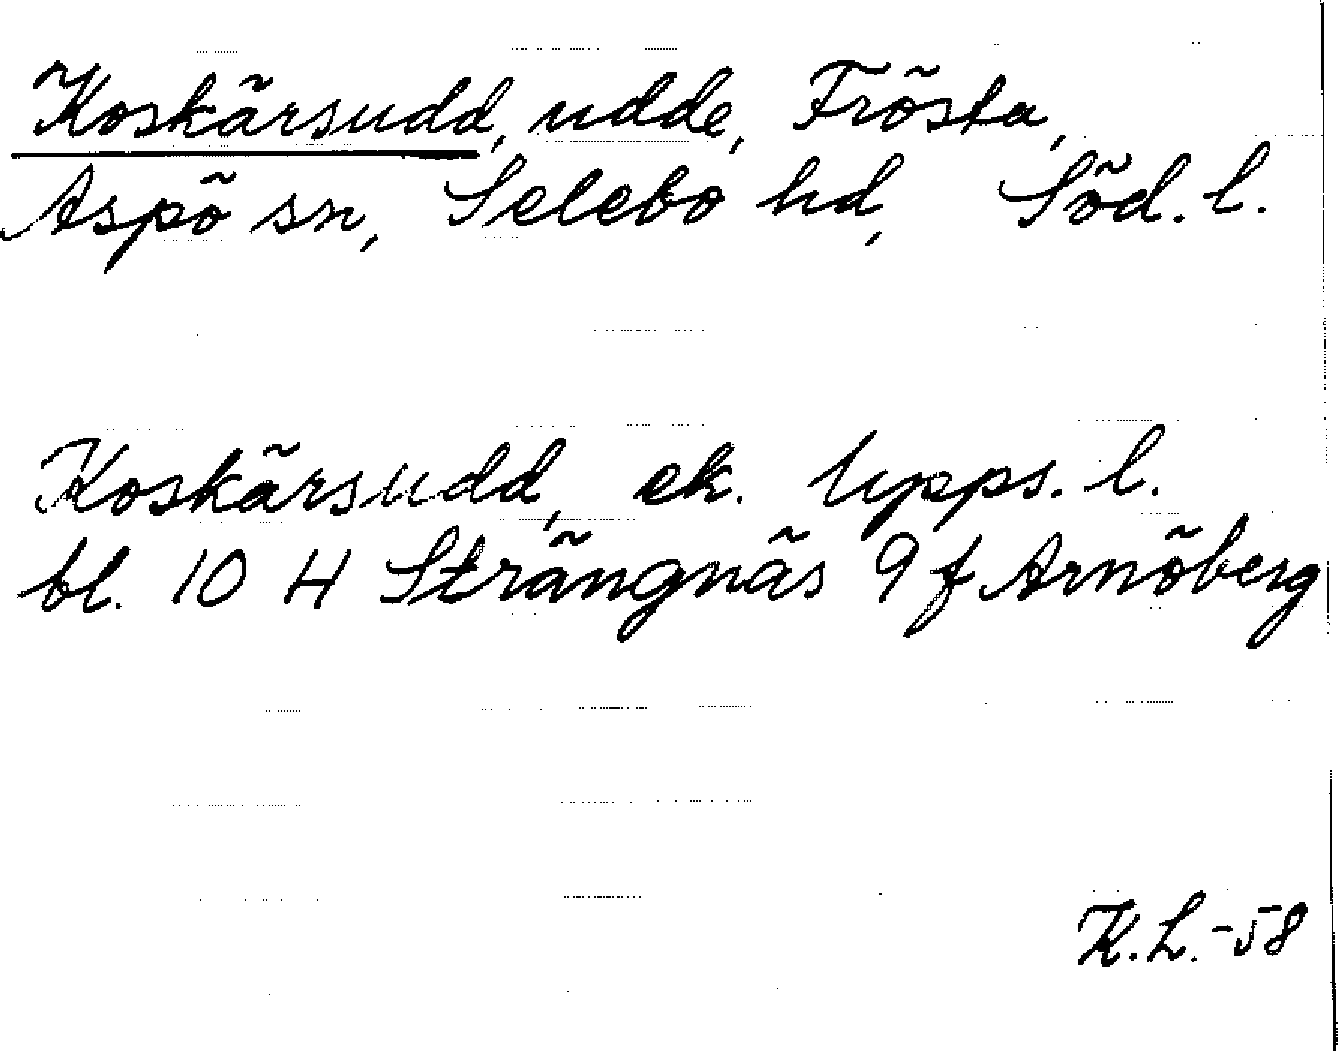 Koskärsudd, udde, Frösta,
Aspö sn, Selebo hd, Söd. l.
Koskärsudd, ek. Upps. l.
bl. 10 H Strängnäs 9 f Arnöberg
K.L.-58